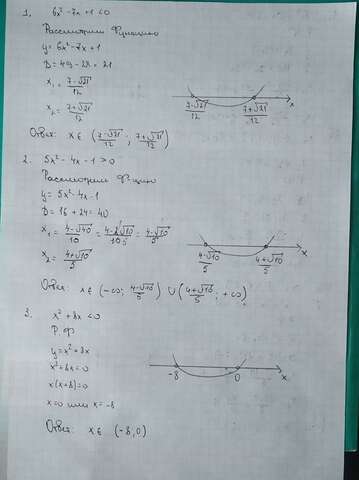 1. 6x² - 7x + 1 < 0
Рассмотрим функцию
y = 6x² - 7x + 1
D = 49 - 28 = 21
x₁ = (7-√21)/12
x₂ = (7+√21)/12
(7-√21)/12 (7+√21)/12 x
Ответ: x ∈ ((7-√21)/12 ; (7+√21)/12)
2. 5x² - 4x - 1 > 0
Рассмотрим ф-цию
y = 5x² - 4x - 1
D = 16 + 24 = 40
x₁ = (4-√40)/10 = (4-2√10)/10 5 = (4-√10)/5
x₂ = (4+√10)/5
(4-√10)/5 (4+√10)/5 x
Ответ: x ∈ (-∞; (4-√10)/5) ∪ ((4+√10)/5 ; +∞)
3. x² + 8x < 0
Р. ф
y = x² + 8x
x² + 8x = 0
x(x+8) = 0
x = 0 или x = -8
-8 0 x
Ответ: x ∈ (-8; 0)